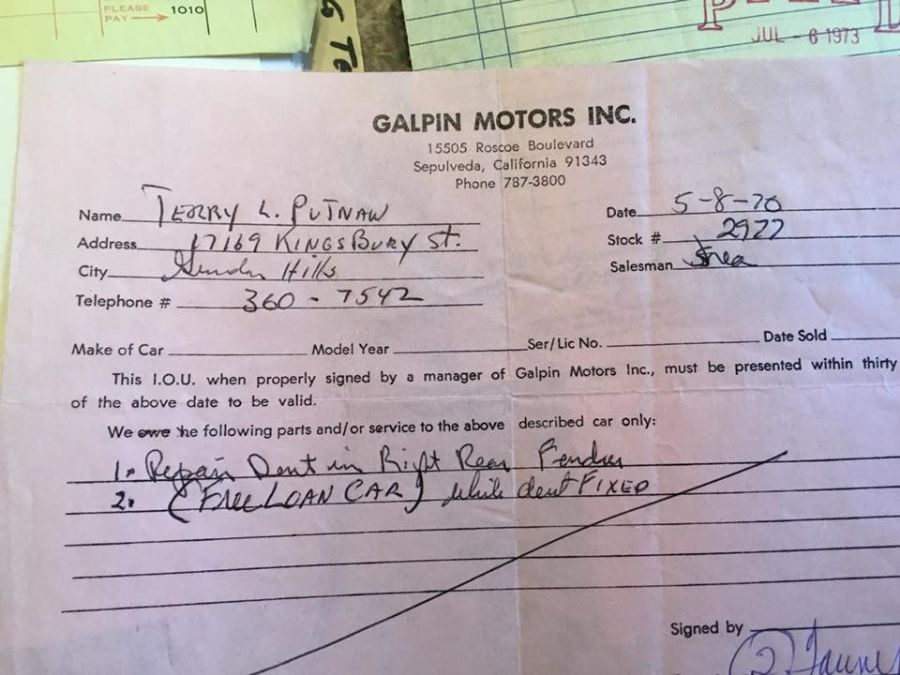 PLEASE
PAY → 1010
JUL - 6 1973
GALPIN MOTORS INC.
15505 Roscoe Boulevard
Sepulveda, California 91343
Phone 787-3800
Name TERRY L. PUTNAW
Address 17169 KINGSBURY St.
City Hills
Telephone # 360 - 7542
Date 5-8-70
Stock # 2977
Salesman Shea
Make of Car Model Year Ser/Lic No. Date Sold
This I.O.U. when properly signed by a manager of Galpin Motors Inc., must be presented within thirty
of the above date to be valid.
We owe the following parts and/or service to the above described car only:
1. Repair Dent in Right Rear Fender
2. (FREE LOAN CAR) while dent FIXED
Signed by
(2)